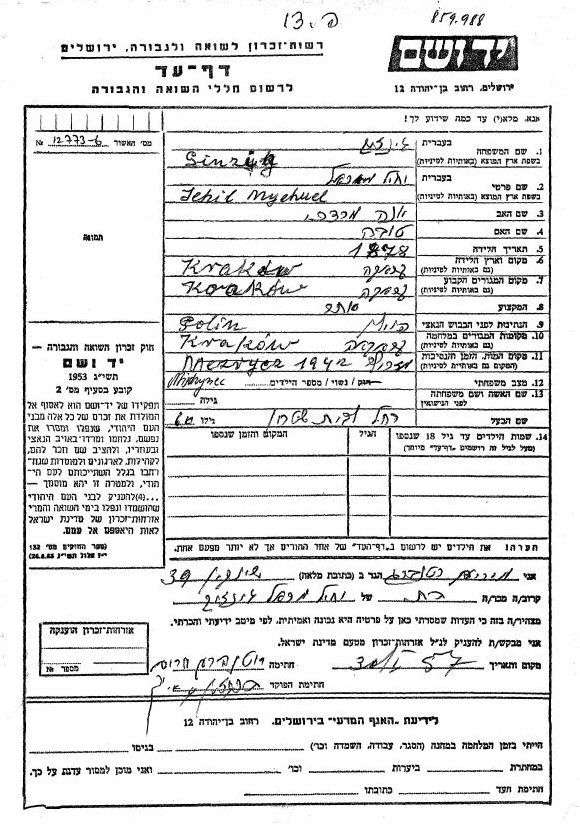 859.988
פ. 13
יד ושם
ירושלים, רחוב בן-יהודה 12
רשות-זכרון לשואה ולגבורה, ירושלים
דף-עד
לרשום חללי השואה והגבורה
אנא, מלא(י) עד כמה שידוע לך!
מס' האשור
№ 12773-6
תמונה
1. שם המשפחה
בשפת ארץ המוצא (באותיות לטיניות)
בעברית
2. שם פרטי
בשפת ארץ המוצא (באותיות לטיניות)
בעברית יחיאל מיכאל
Jehil
3. שם האב
4. שם האם טובה
5. תאריך הלידה 1878
6. מקום וארץ הלידה
(גם באותיות לטיניות)
Kraków
7. מקום המגורים הקבוע
(גם באותיות לטיניות)
Kraków
8. המקצוע סוחר
9. הנתינות לפני הכבוש הנאצי פולין
Polin
10. מקומות המגורים במלחמה
(גם באותיות לטיניות)
Kraków
11. מקום המות, הזמן והנסיבות
(המקום גם באותיות לטיניות)
1942
12. מצב משפחתי
רווק/ נשוי/ מספר הילדים
13. שם האשה ושם משפחתה
לפני הנישואין
רחל
גילה
שם הבעל
גילו
14. שמות הילדים עד גיל 18 שנספו
(מעל לגיל זה רושמים "דף-עד" מיוחד)
הגיל
המקום והזמן שנספו
חוק זכרון השואה והגבורה —
יד ושם
תשי"ג 1953
קובע בסעיף מס' 2
תפקידו של יד-ושם הוא לאסוף אל
המולדת את זכרם של כל אלה מבני
העם היהודי, שנפלו ומסרו את
נפשם, נלחמו ומרדו באויב הנאצי
ובעוזריו, ולהציב שם וזכר להם,
לקהילות, לארגונים ולמוסדות שנח־
רבו בגלל השתייכותם לעם היהו־
די, ולמטרה זו יהא מוסמך —
...(4) להעניק לבני העם היהודי
שהושמדו ונפלו בימי השואה והמרי
אזרחות-זכרון של מדינת ישראל
לאות היאספם אל עמם.
(ספר החוקים מס' 132
י"ז אלול תשי"ג 28.8.53)
הערה: את הילדים יש לרשום ב"דף-העד" של אחד ההורים אך לא יותר מפעם אחת.
אני מרים הגר ב (כתובת מלאה) 39
קרוב/ה מכר/ה בת של יחיאל מיכאל
מצהיר/ה בזה כי העדות שמסרתי כאן על פרטיה היא נכונה ואמיתית, לפי מיטב ידיעתי והכרתי.
אני מבקש/ת להעניק לנ"ל אזרחות-זכרון מטעם מדינת ישראל.
מקום ותאריך
חתימה
חתימת הפוקד
אזרחות-זכרון הוענקה
מספר №
לידיעת "האגף המדעי" בירושלים. רחוב בן-יהודה 12
הייתי בזמן המלחמה במחנה (הסגר, עבודה, השמדה וכו')
בגיטו
במחתרת
ביערות
וכו'
ואני מוכן למסור עדות על כך.
חתימת העד
כתובתו